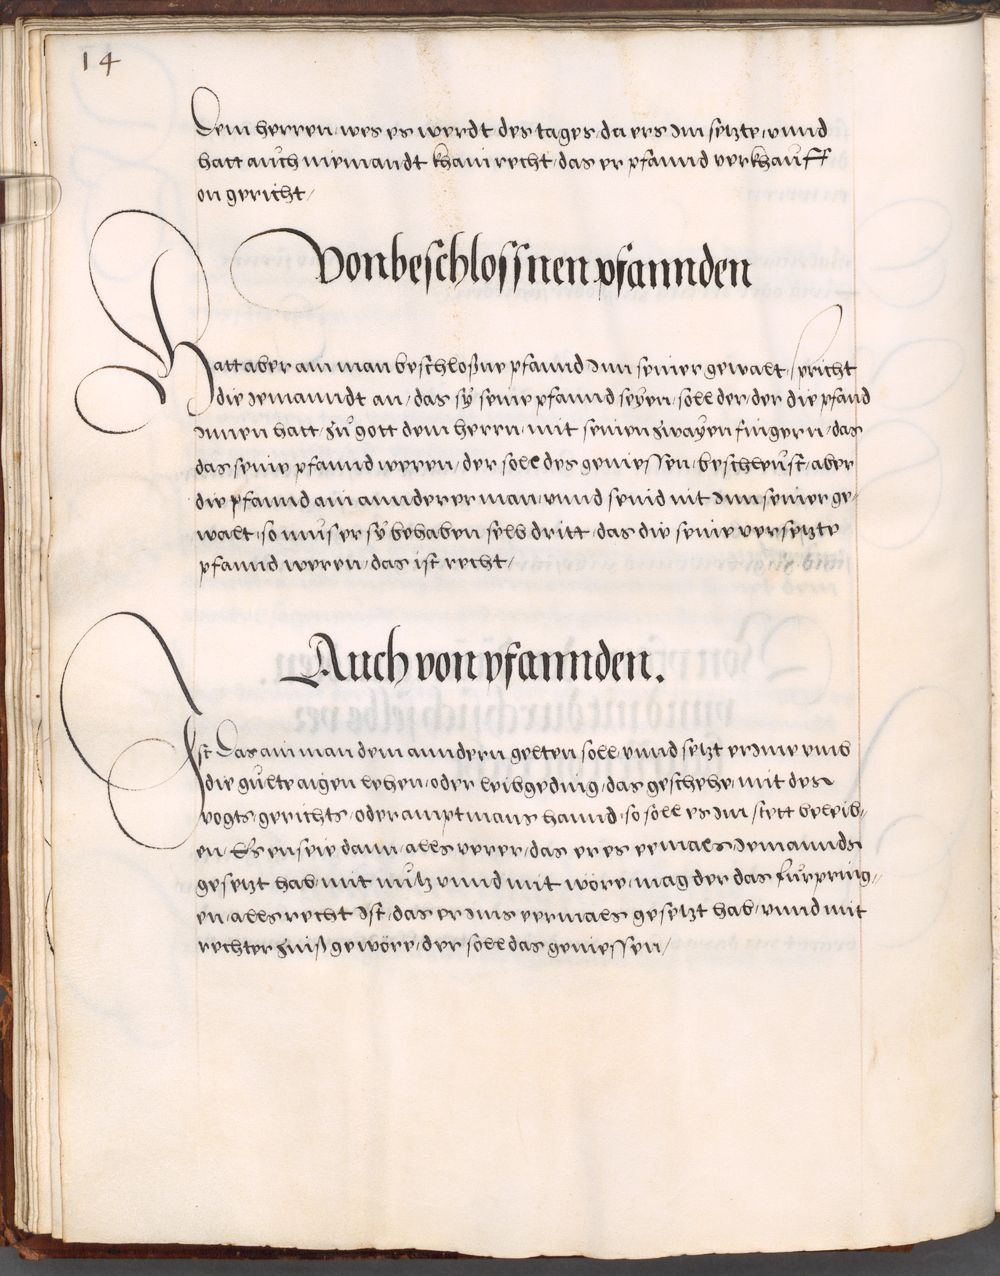 14
Dem herren / wes es werdt des tages / da ers Im setzte / vnnd
hatt aǔch niemandt khain recht / das er pfannd verkhaǔff
on gericht /
Von beschlossnen pfannden
Hatt aber ain man beschloßne pfannd Inn seiner gewalt / spricht
die Iemanndt an / das sÿ seine pfannd seÿen / soll der / der die pfand
Innen hatt / zǔ gott dem herren / mit seinen zwaÿen fingern / das
das seine pfannd weren / der soll des geniessen / beschleǔst / aber
die pfannd ain annderer man / vnnd seind nit Inn seiner ge-
walt / so mǔs er sÿ behaben selb dritt / das die seine versetzte
pfannd weren / das ist recht /
Auch von pfannden.
Ist Das ain man dem anndern gelten soll / vnnd setzt er Ime vmb
die gǔlte aigen lehen / oder leibgeding / das geschehe / mit des
vogts / gerichts / oder amptmans hannd / so soll es Im stett beleib-
en / Es en seie dann / alls verer / das er es vemals Iemannds
gesetzt hab / mit nǔtz vnnd mit wöre / mag der das fǔrpring-
en / alls recht Ist / das er Ims vermals gesetzt hab / vnnd mit
rechter zinß gewöre / der soll das geniessen /